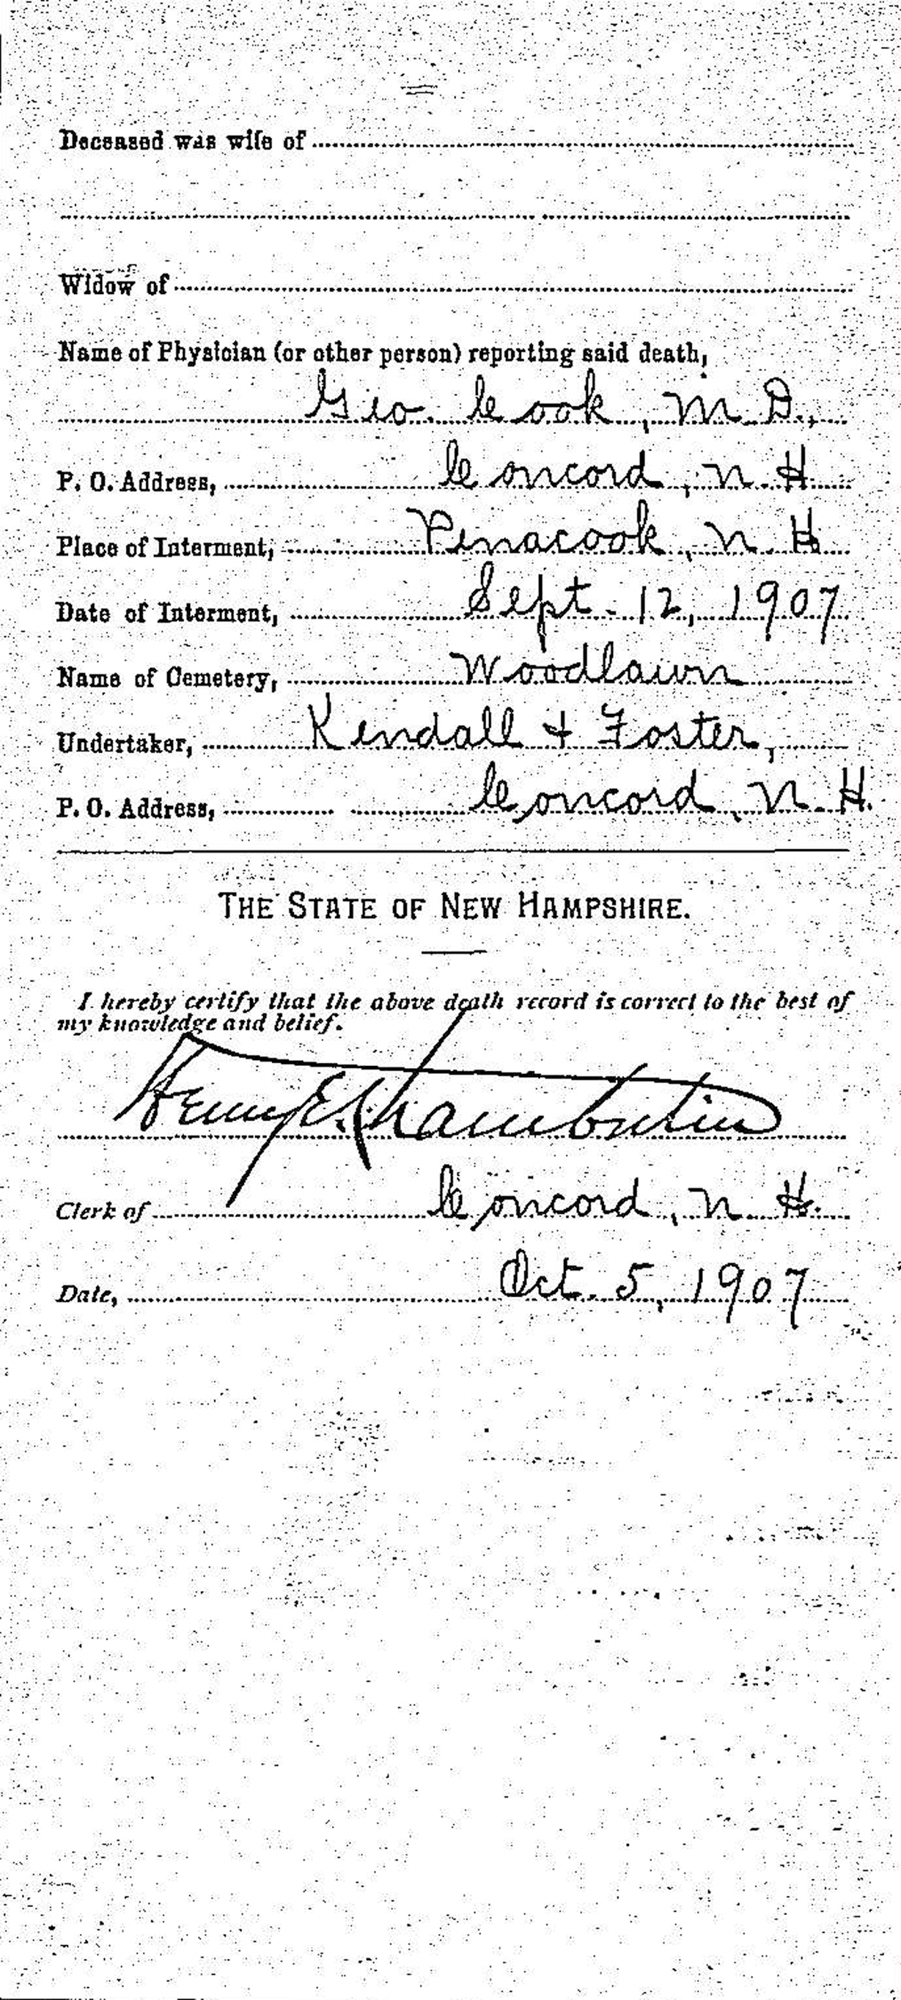 Deceased was wife of
Widow of
Name of Physician (or other person) reporting said death,
Geo. Cook, M.D.,
P. O. Address, Concord, N. H.
Place of Interment, Penacook, N. H.
Date of Interment, Sept. 12, 1907
Name of Cemetery, Woodlawn
Undertaker, Kendall & Foster,
P. O. Address, Concord, N. H.
THE STATE OF NEW HAMPSHIRE.
I hereby certify that the above death record is correct to the best of
my knowledge and belief.
Henry E. Chamberlin
Clerk of Concord, N. H.
Date, Oct. 5, 1907